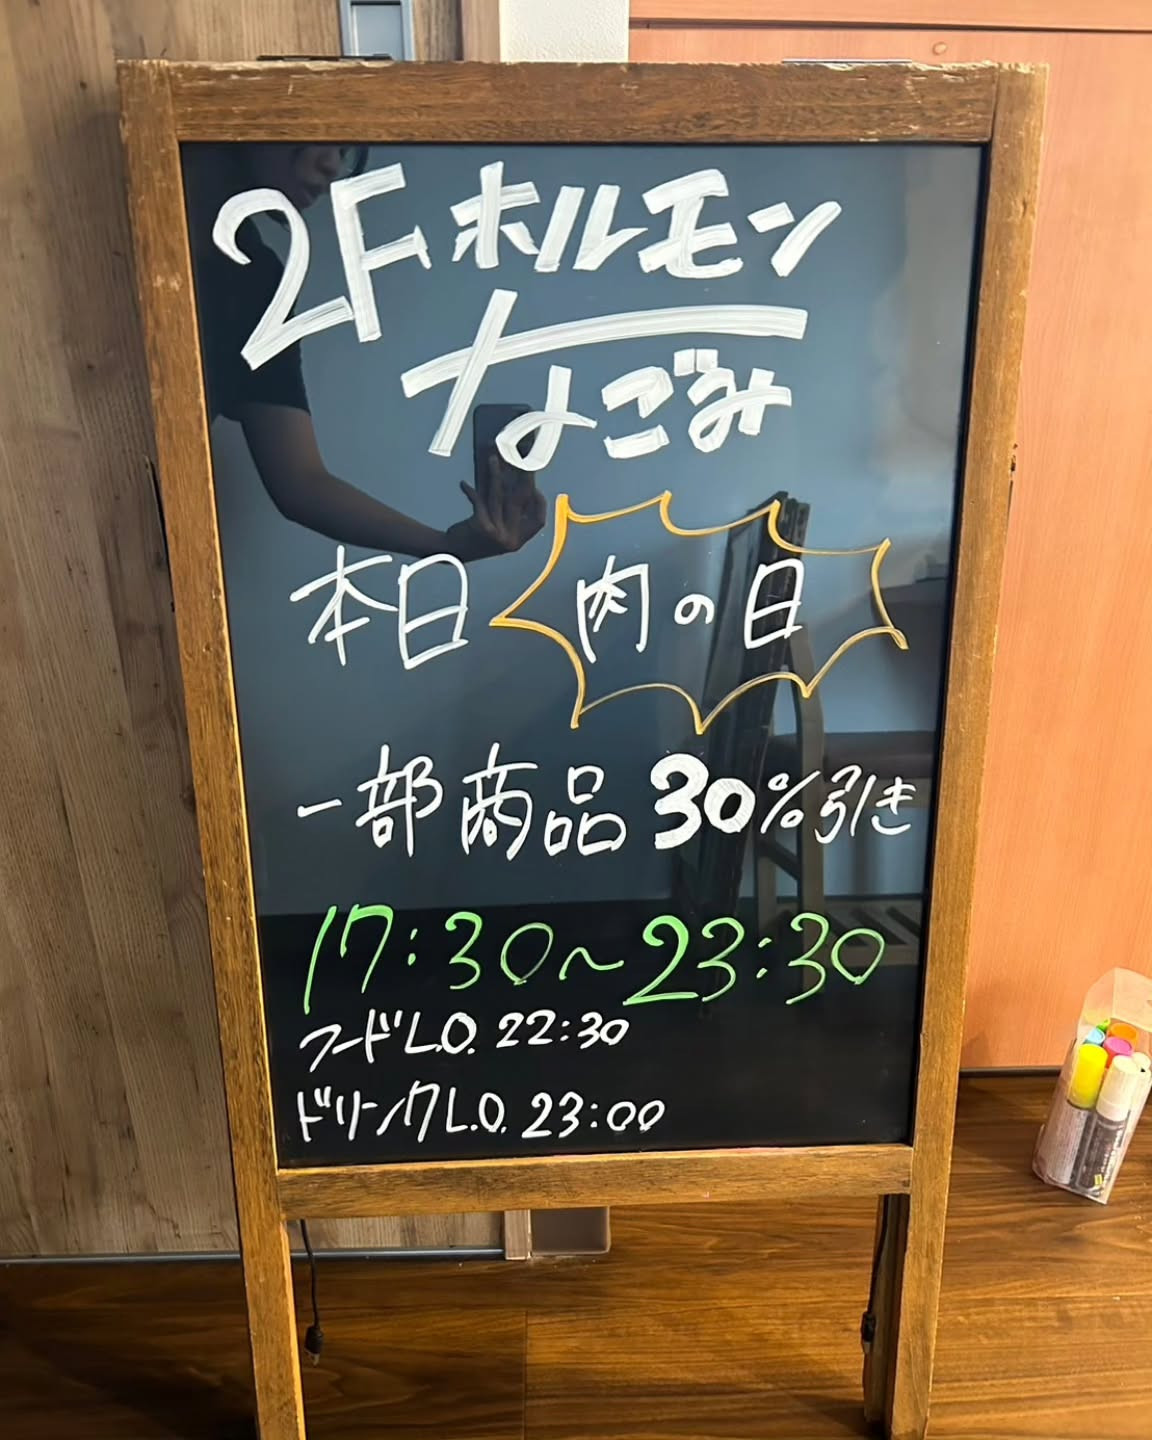 2F ホルモン
なごみ
本日 肉の日
一部商品 30%引き
17:30～23:30
フードL.O. 22:30
ドリンクL.O. 23:00